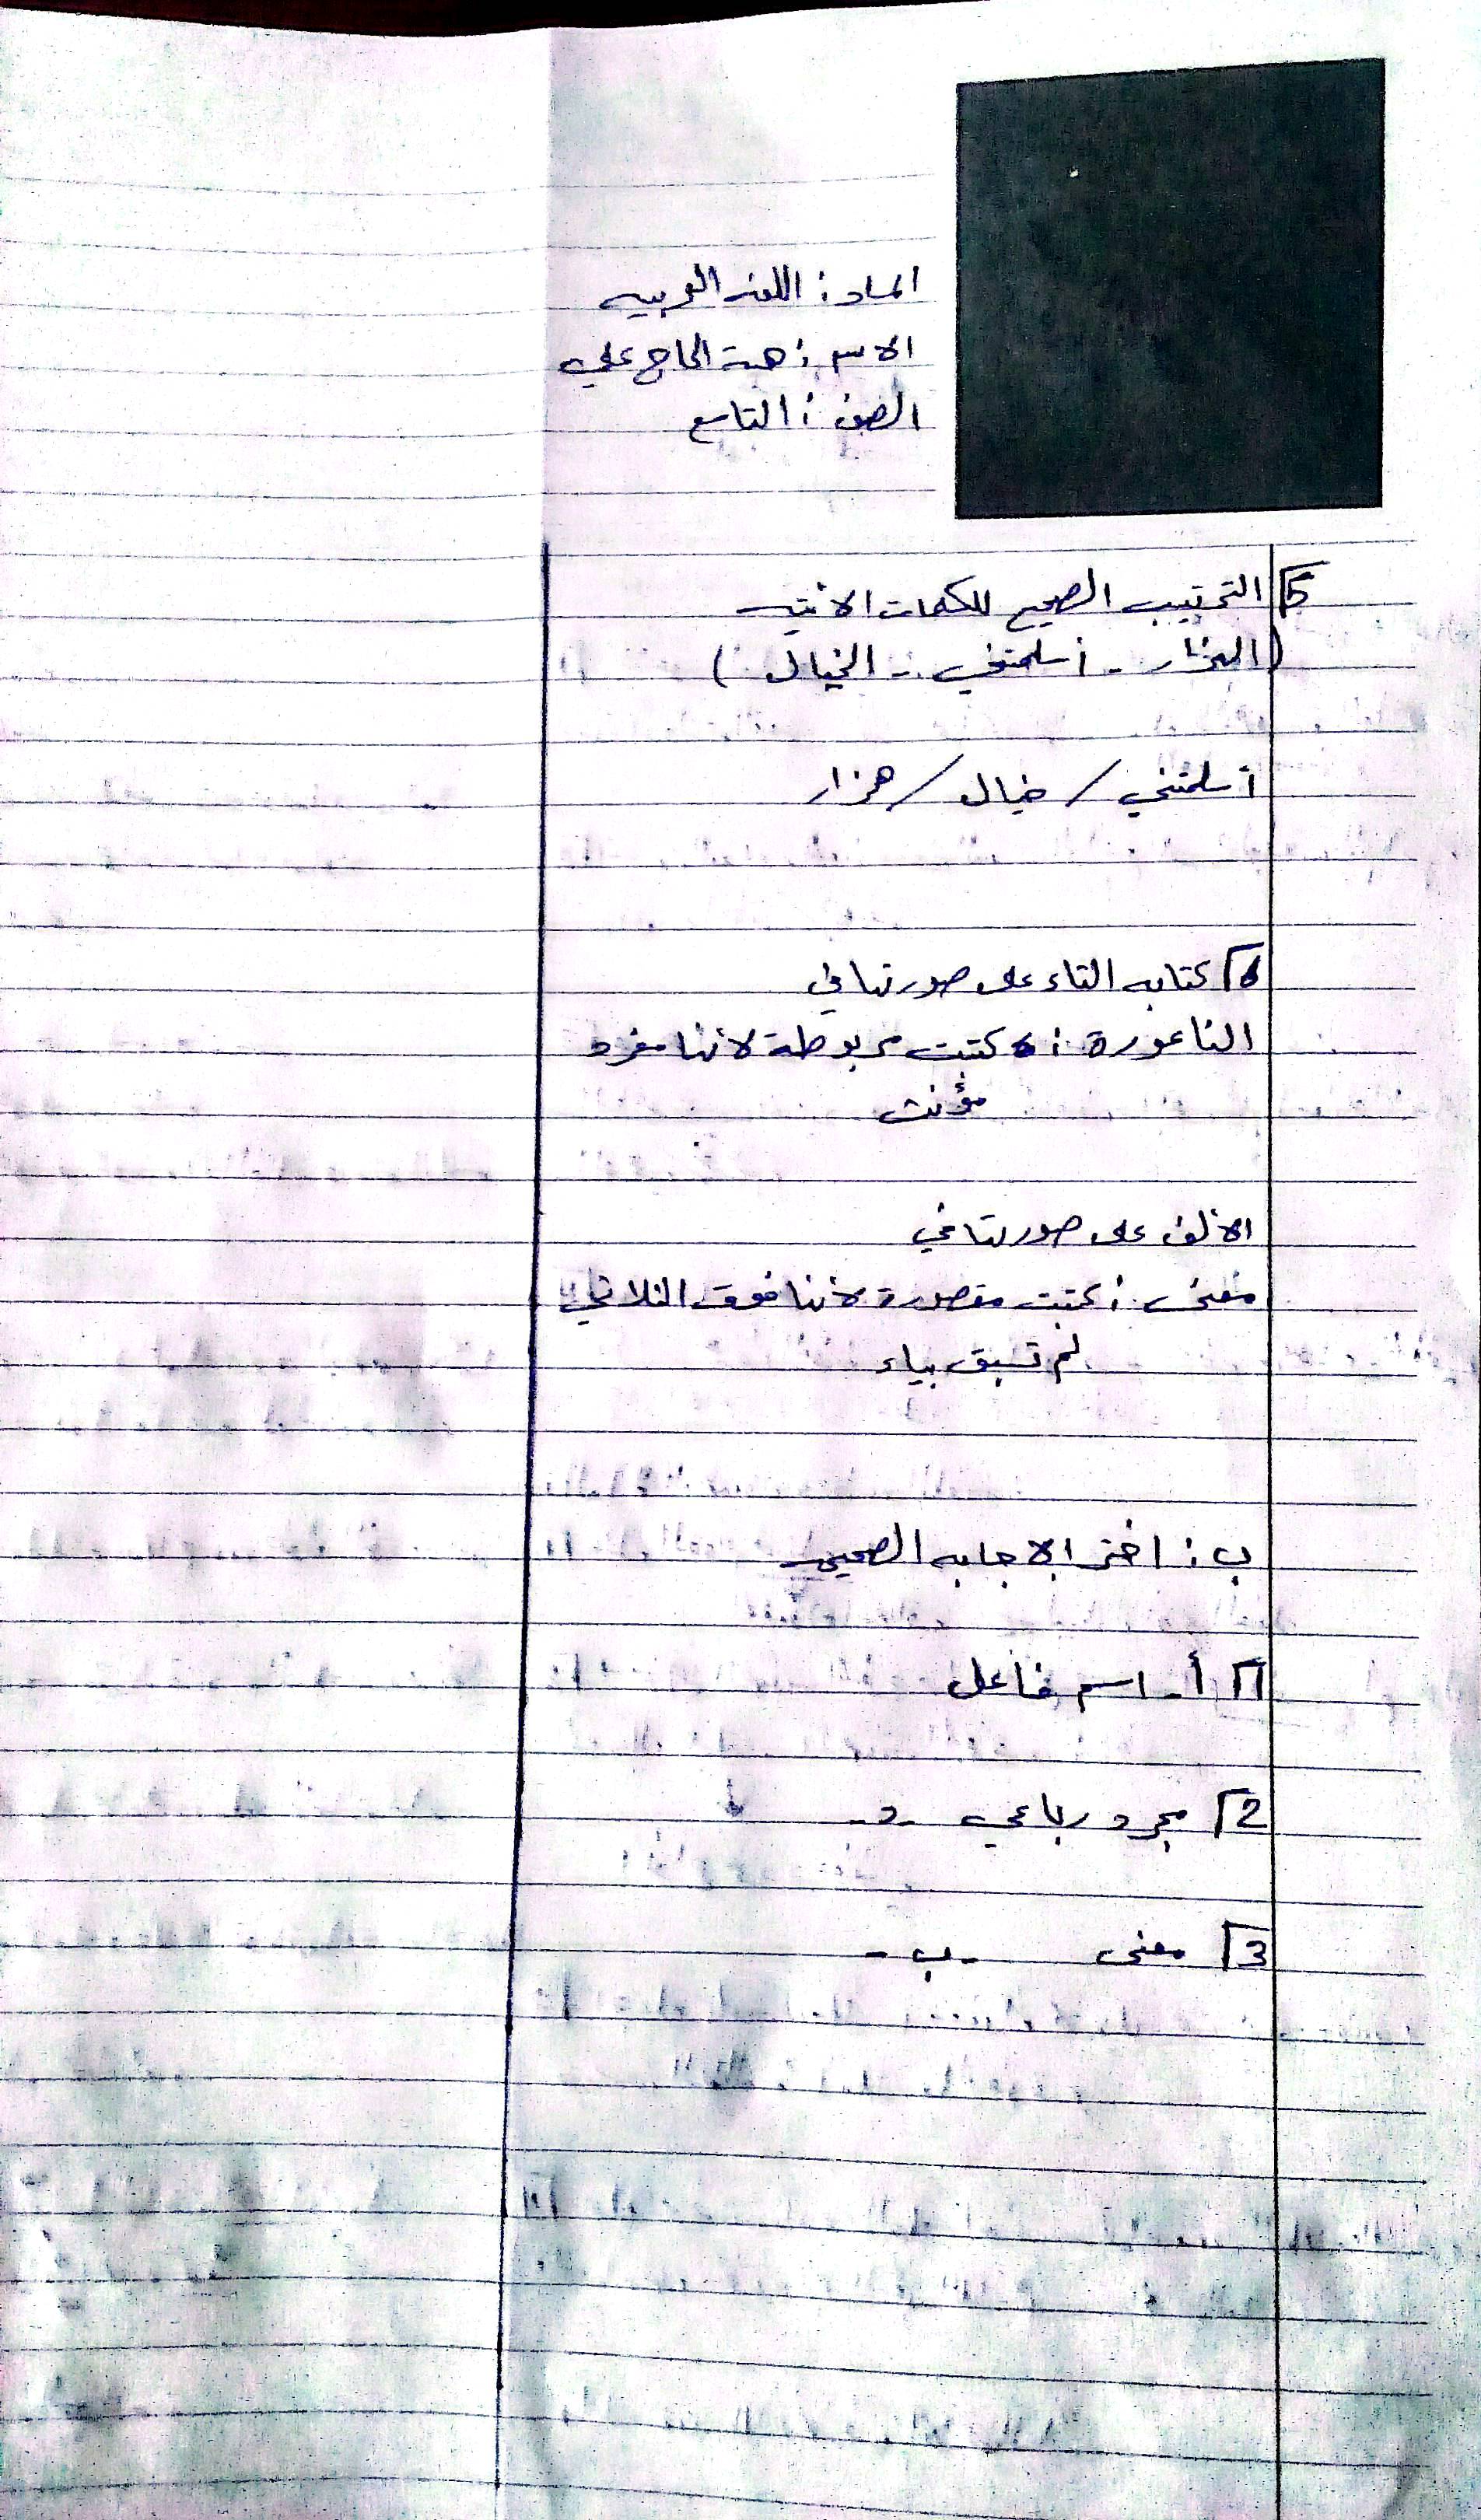 المادة: اللغة العربيه
الاسم: هبة الحاج علي
الصف: التاسع
5 الترتيب الصحيح للكلمات الاتيه
(الهزار - أسلمتني - الخيال)
أسلمتني / خيال / هزار
6 كتابه التاء على صورتها في
الناعورة: كتبت مربوطة لانها مفرد
مؤنث
الألف على صورتها في
مغنى: كتبت مقصورة لأنها فوق الثلاثي
لم تسبق بياء
ب: اختر الاجابه الصحيحه
1 أ- اسم فاعل
2 مجرد رباعي -د-
3 معنى -ب-